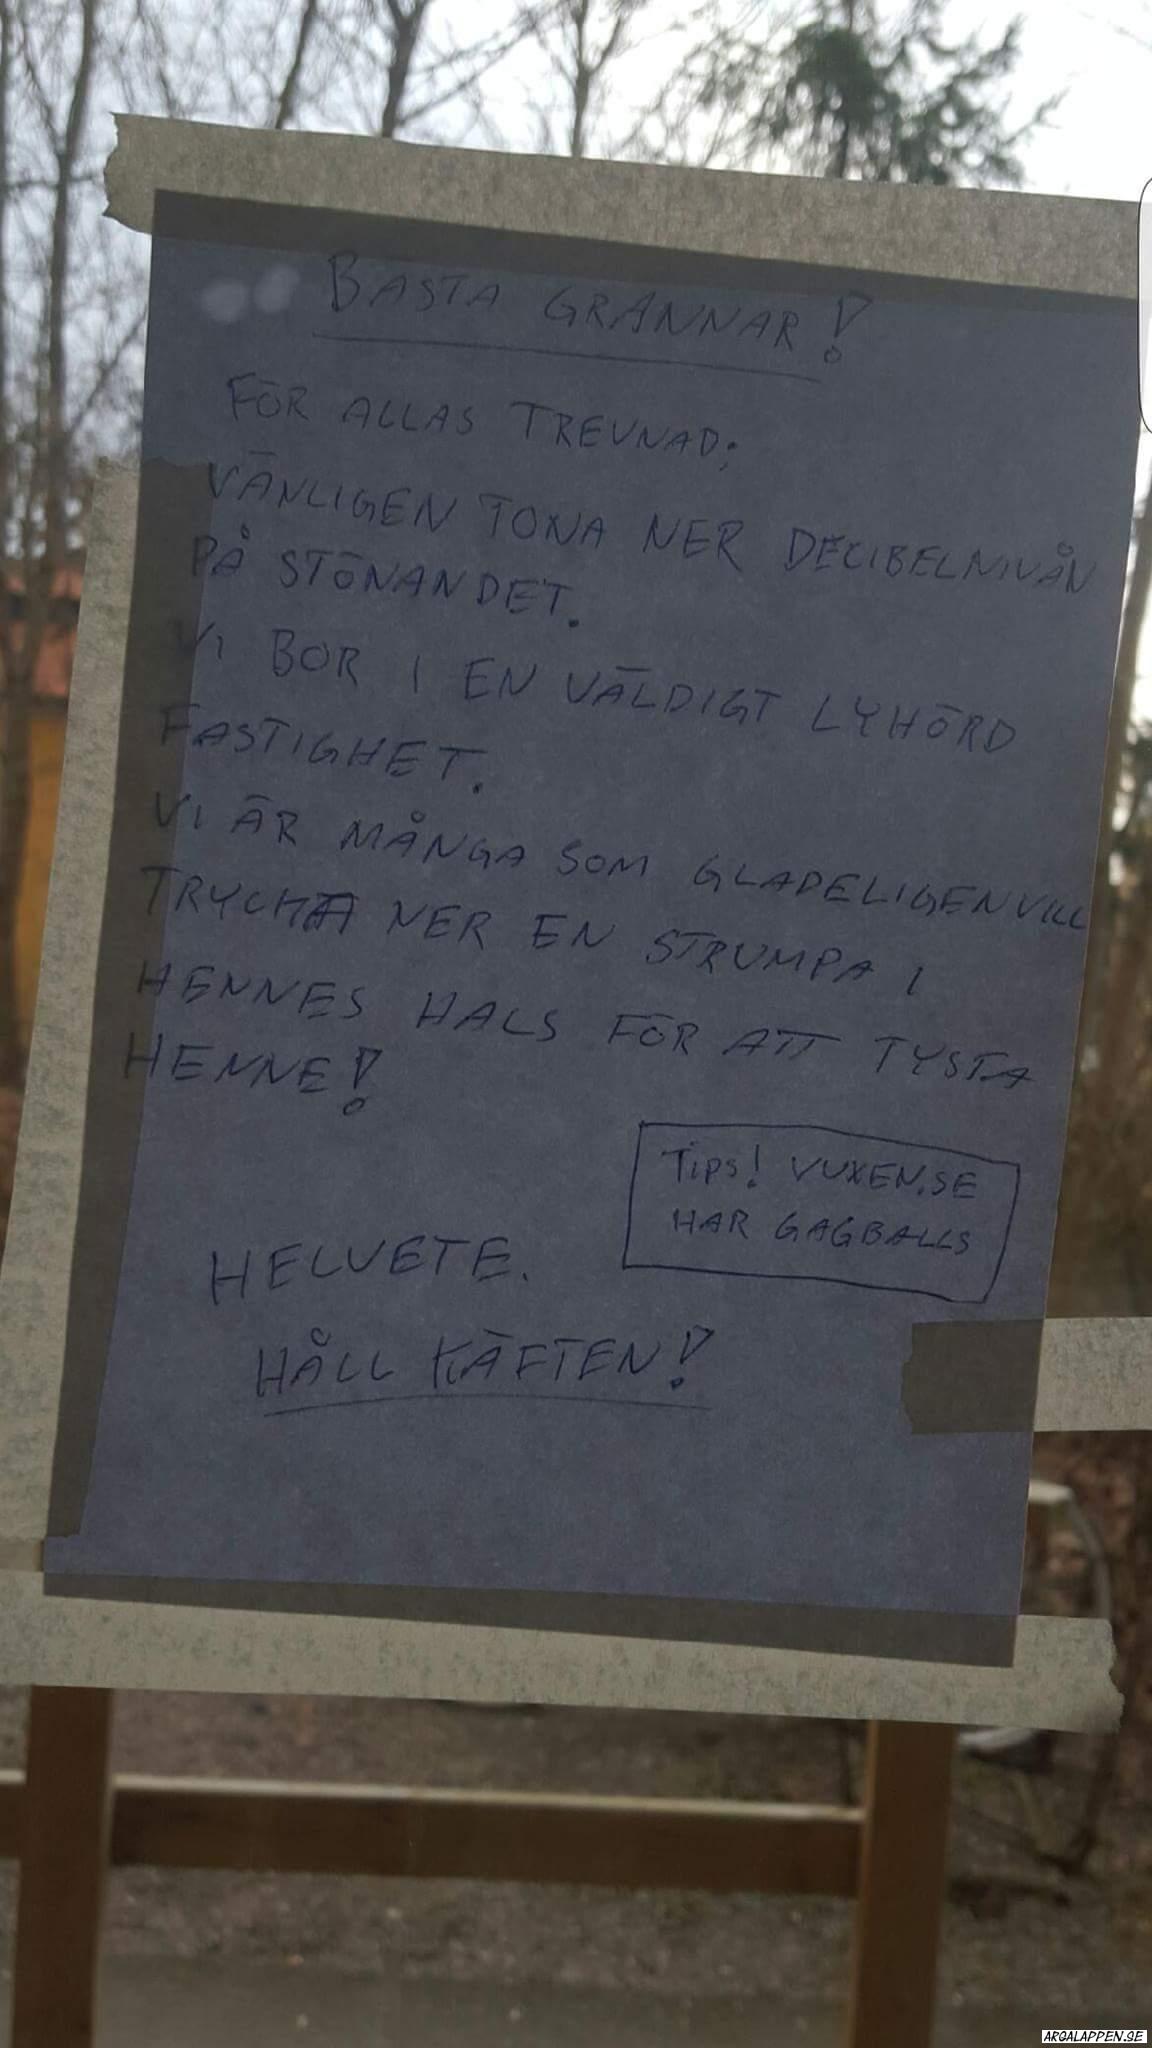 BÄSTA GRANNAR!
FÖR ALLAS TREVNAD;
VÄNLIGEN TONA NER DECIBELNIVÅN
PÅ STÖNANDET.
VI BOR I EN VÄLDIGT LYHÖRD
FASTIGHET.
VI ÄR MÅNGA SOM GLADELIGEN VILL
TRYCKA NER EN STRUMPA I
HENNES HALS FÖR ATT TYSTA
HENNE!
TIPS! VUXEN.SE
HAR GAGBALLS
HELVETE.
HÅLL KÄFTEN!
ARGALAPPEN.SE